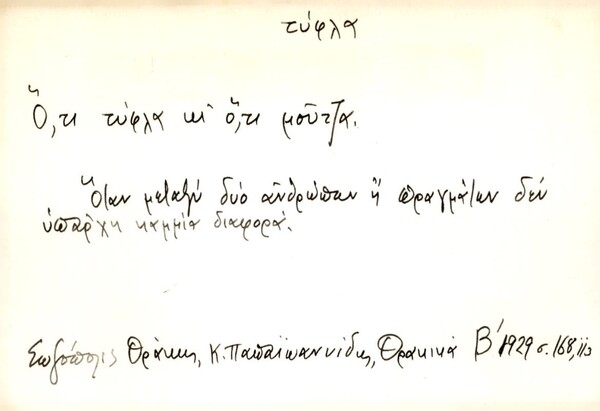 τύφλα
Ὅ,τι τύφλα κι' ὅ,τι μοῦτζα.
Ὅταν μεταξύ δύο ἀνθρώπων ἤ πραγμάτων δέν
ὑπάρχῃ καμμία διαφορά.
Σωζόπολις Θράκης, Κ. Παπαϊωαννίδης, Θρακικά Β' 1929 σ. 168,